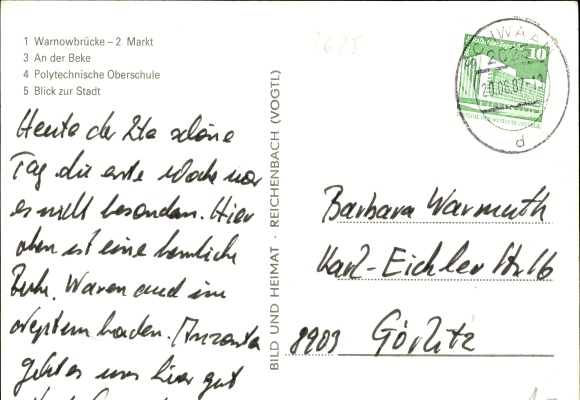 1 Warnowbrücke – 2 Markt
3 An der Beke
4 Polytechnische Oberschule
5 Blick zur Stadt
Heute der 2te schöne
Tag die erste Woche war
es nicht besonders. Hier
oben ist eine herrliche
Ruhe. Waren auch im
baden.
geht es uns hier gut
BILD UND HEIMAT · REICHENBACH (VOGTL)
1625
SCHWAAN
20.06.87-13
d
10
Barbara Warmuth
Karl-Eichler Str. 16
8903 Görlitz